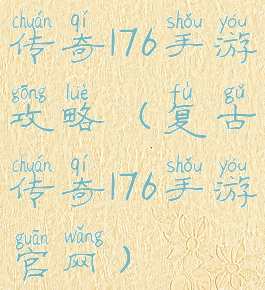 chuán qí shǒu yóu
传奇176手游
gōng lüè fù gǔ
攻略（复古
chuán qí shǒu yóu
传奇176手游
guān wǎng
官网）